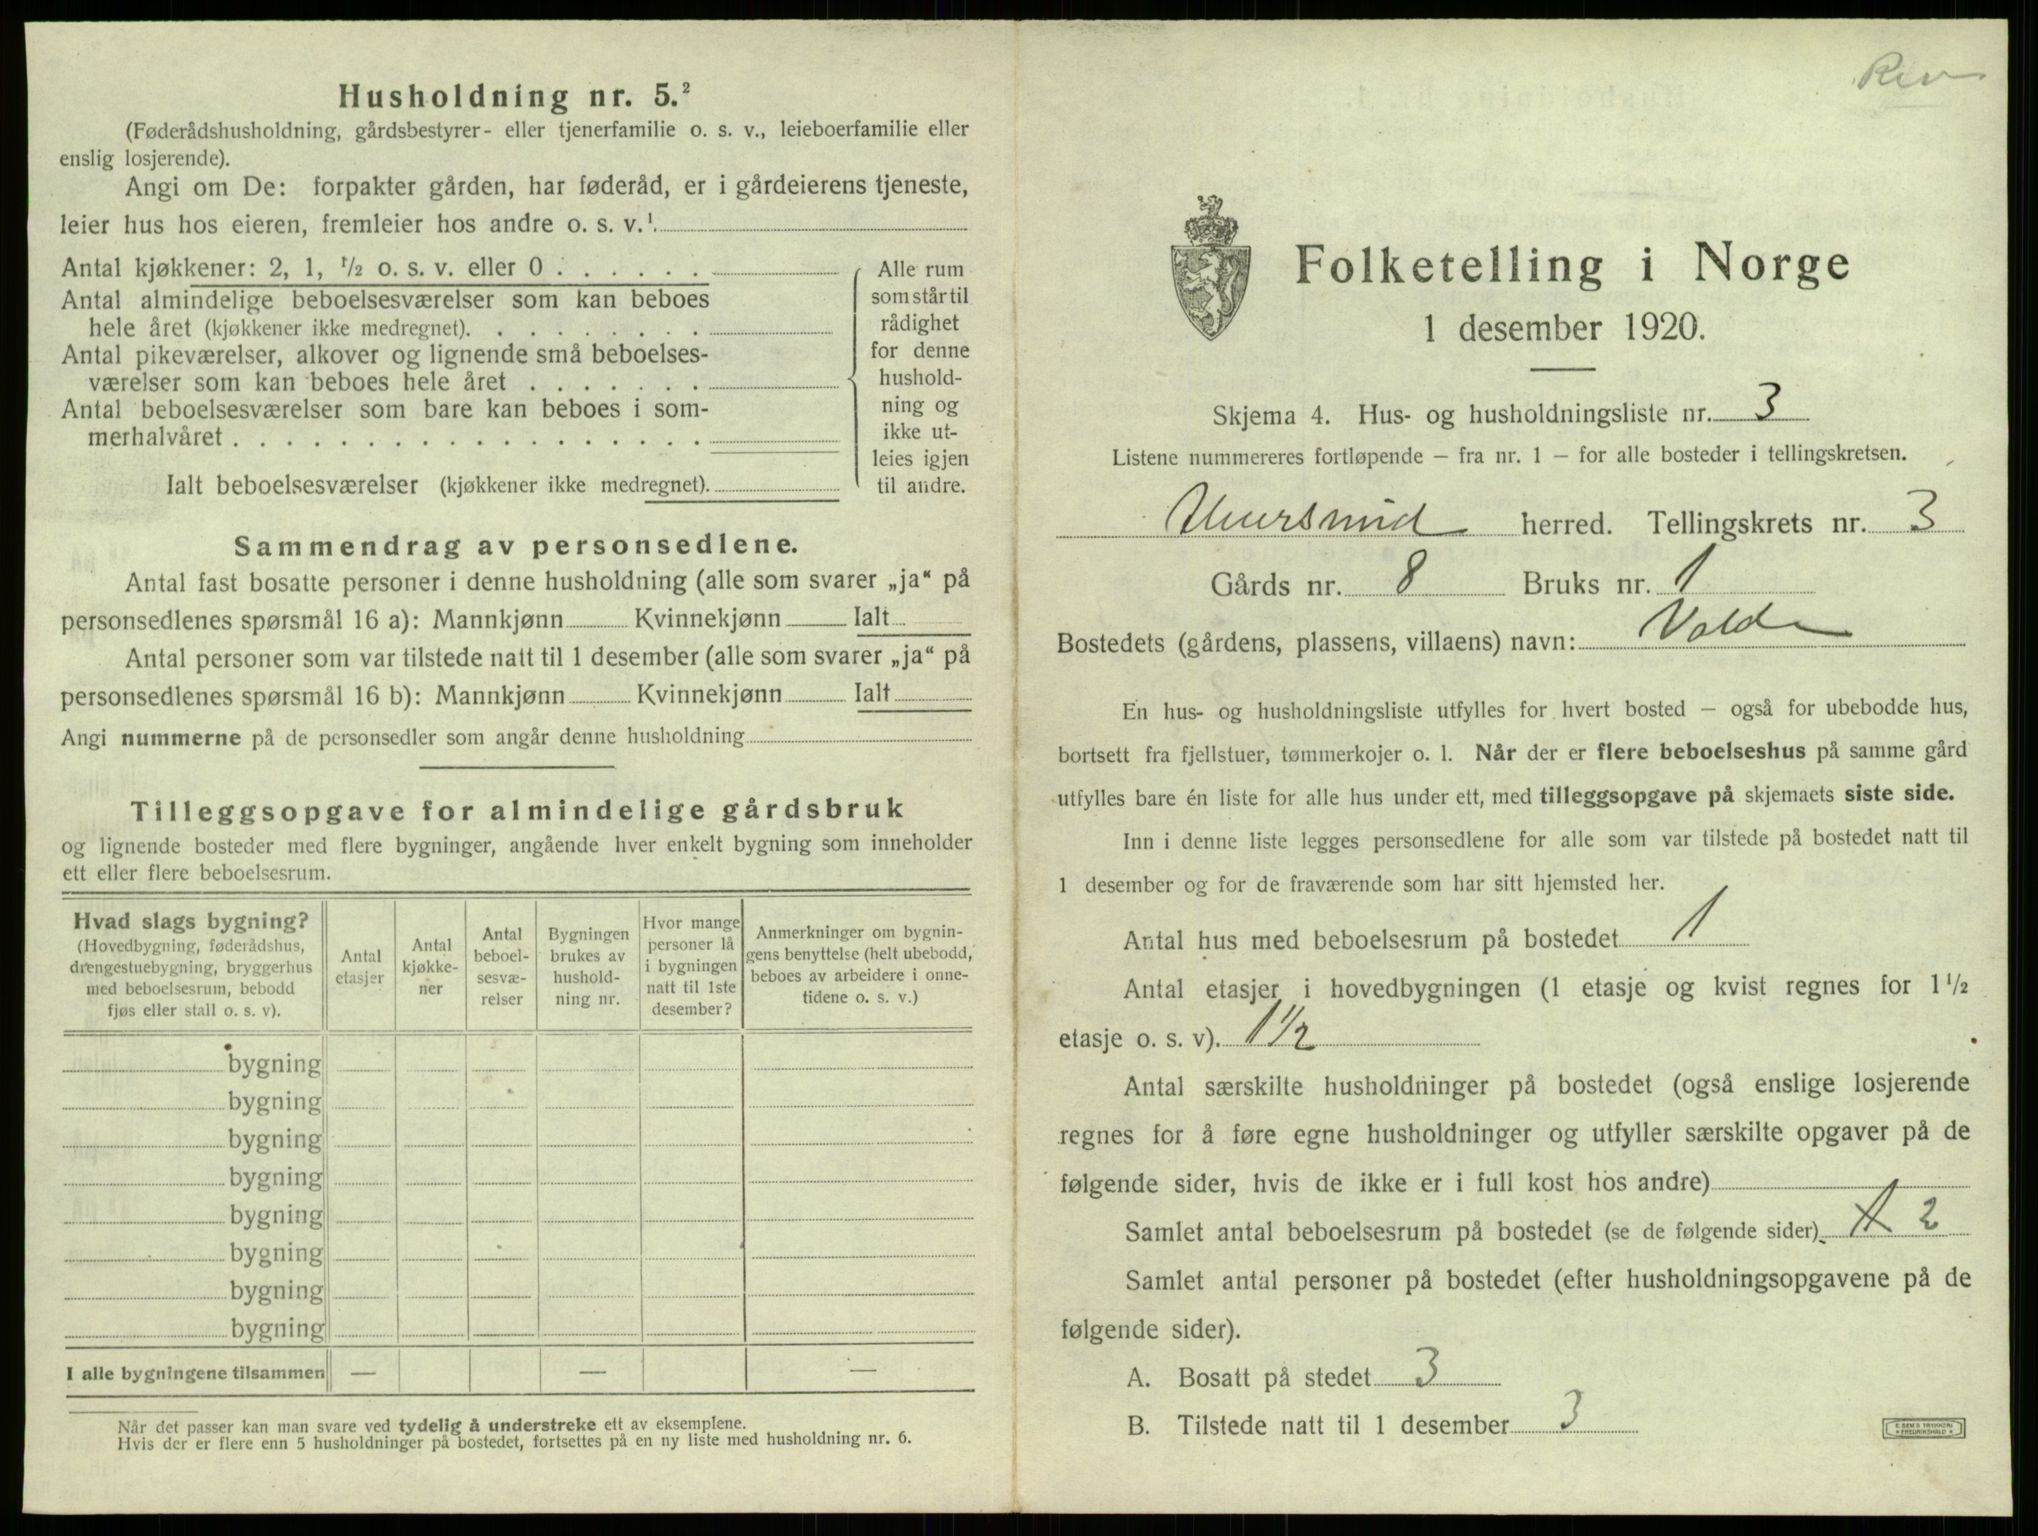 Husholdning nr. 5.²
(Føderådshusholdning, gårdsbestyrer- eller tjenerfamilie o. s. v., leieboerfamilie eller
enslig losjerende).
Angi om De: forpakter gården, har føderåd, er i gårdeierens tjeneste,
leier hus hos eieren, fremleier hos andre o. s. v.¹
Antal kjøkkener: 2, 1, ½ o. s. v. eller 0 . . . . . .
Antal almindelige beboelsesværelser som kan beboes
hele året (kjøkkener ikke medregnet). . . . . . . . .
Antal pikeværelser, alkover og lignende små beboelses-
værelser som kan beboes hele året . . . . . . .
Antal beboelsesværelser som bare kan beboes i som-
merhalvåret . . . . . . . . . . . . . . . . . .
Ialt beboelsesværelser (kjøkkener ikke medregnet).
Alle rum
som står til
rådighet
for denne
hushold-
ning og
ikke ut-
leies igjen
til andre.
Sammendrag av personsedlene.
Antal fast bosatte personer i denne husholdning (alle som svarer „ja“ på
personsedlenes spørsmål 16 a): Mannkjønn Kvinnekjønn Ialt
Antal personer som var tilstede natt til 1 desember (alle som svarer „ja“ på
personsedlenes spørsmål 16 b): Mannkjønn Kvinnekjønn Ialt
Angi nummerne på de personsedler som angår denne husholdning
Tilleggsopgave for almindelige gårdsbruk
og lignende bosteder med flere bygninger, angående hver enkelt bygning som inneholder
ett eller flere beboelsesrum.
Hvad slags bygning?
(Hovedbygning, føderådshus,
drengestuebygning, bryggerhus
med beboelsesrum, bebodd
fjøs eller stall o. s. v).
Antal
etasjer
Antal
kjøkke-
ner
Antal
beboel-
sesvæ-
relser
Bygningen
brukes av
hushold-
ning nr.
Hvor mange
personer lå
i bygningen
natt til 1ste
desember?
Anmerkninger om bygnin-
gens benyttelse (helt ubebodd,
beboes av arbeidere i onne-
tidene o. s. v.)
bygning
bygning
bygning
bygning
bygning
bygning
bygning
bygning
I alle bygningene tilsammen — — —
Når det passer kan man svare ved tydelig å understreke ett av eksemplene.
Hvis der er flere enn 5 husholdninger på bostedet, fortsettes på en ny liste med husholdning nr. 6.
Rev
Folketelling i Norge
1 desember 1920.
Skjema 4. Hus- og husholdningsliste nr. 3
Listene nummereres fortløpende – fra nr. 1 – for alle bosteder i tellingskretsen.
herred. Tellingskrets nr. 3
Gårds nr. 8 Bruks nr. 1
Bostedets (gårdens, plassens, villaens) navn: Volden
En hus- og husholdningsliste utfylles for hvert bosted – også for ubebodde hus,
bortsett fra fjellstuer, tømmerkojer o. l. Når der er flere beboelseshus på samme gård
utfylles bare én liste for alle hus under ett, med tilleggsopgave på skjemaets siste side.
Inn i denne liste legges personsedlene for alle som var tilstede på bostedet natt til
1 desember og for de fraværende som har sitt hjemsted her.
Antal hus med beboelsesrum på bostedet 1
Antal etasjer i hovedbygningen (1 etasje og kvist regnes for 1 ½
etasje o. s. v). 1 ½
Antal særskilte husholdninger på bostedet (også enslige losjerende
regnes for å føre egne husholdninger og utfyller særskilte opgaver på de
følgende sider, hvis de ikke er i full kost hos andre)
Samlet antal beboelsesrum på bostedet (se de følgende sider) 1 2
Samlet antal personer på bostedet (efter husholdningsopgavene på de
følgende sider).
A. Bosatt på stedet 3
B. Tilstede natt til 1 desember 3
E. SEM'S TRYKKERI
FREDRIKSHALD